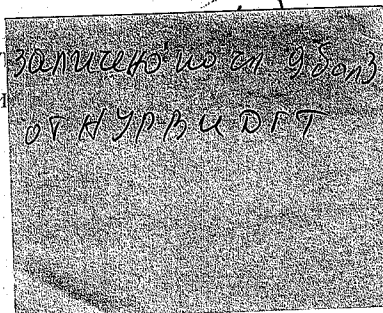 заличено по чл. 9б ал3
от НУРВИДГТ